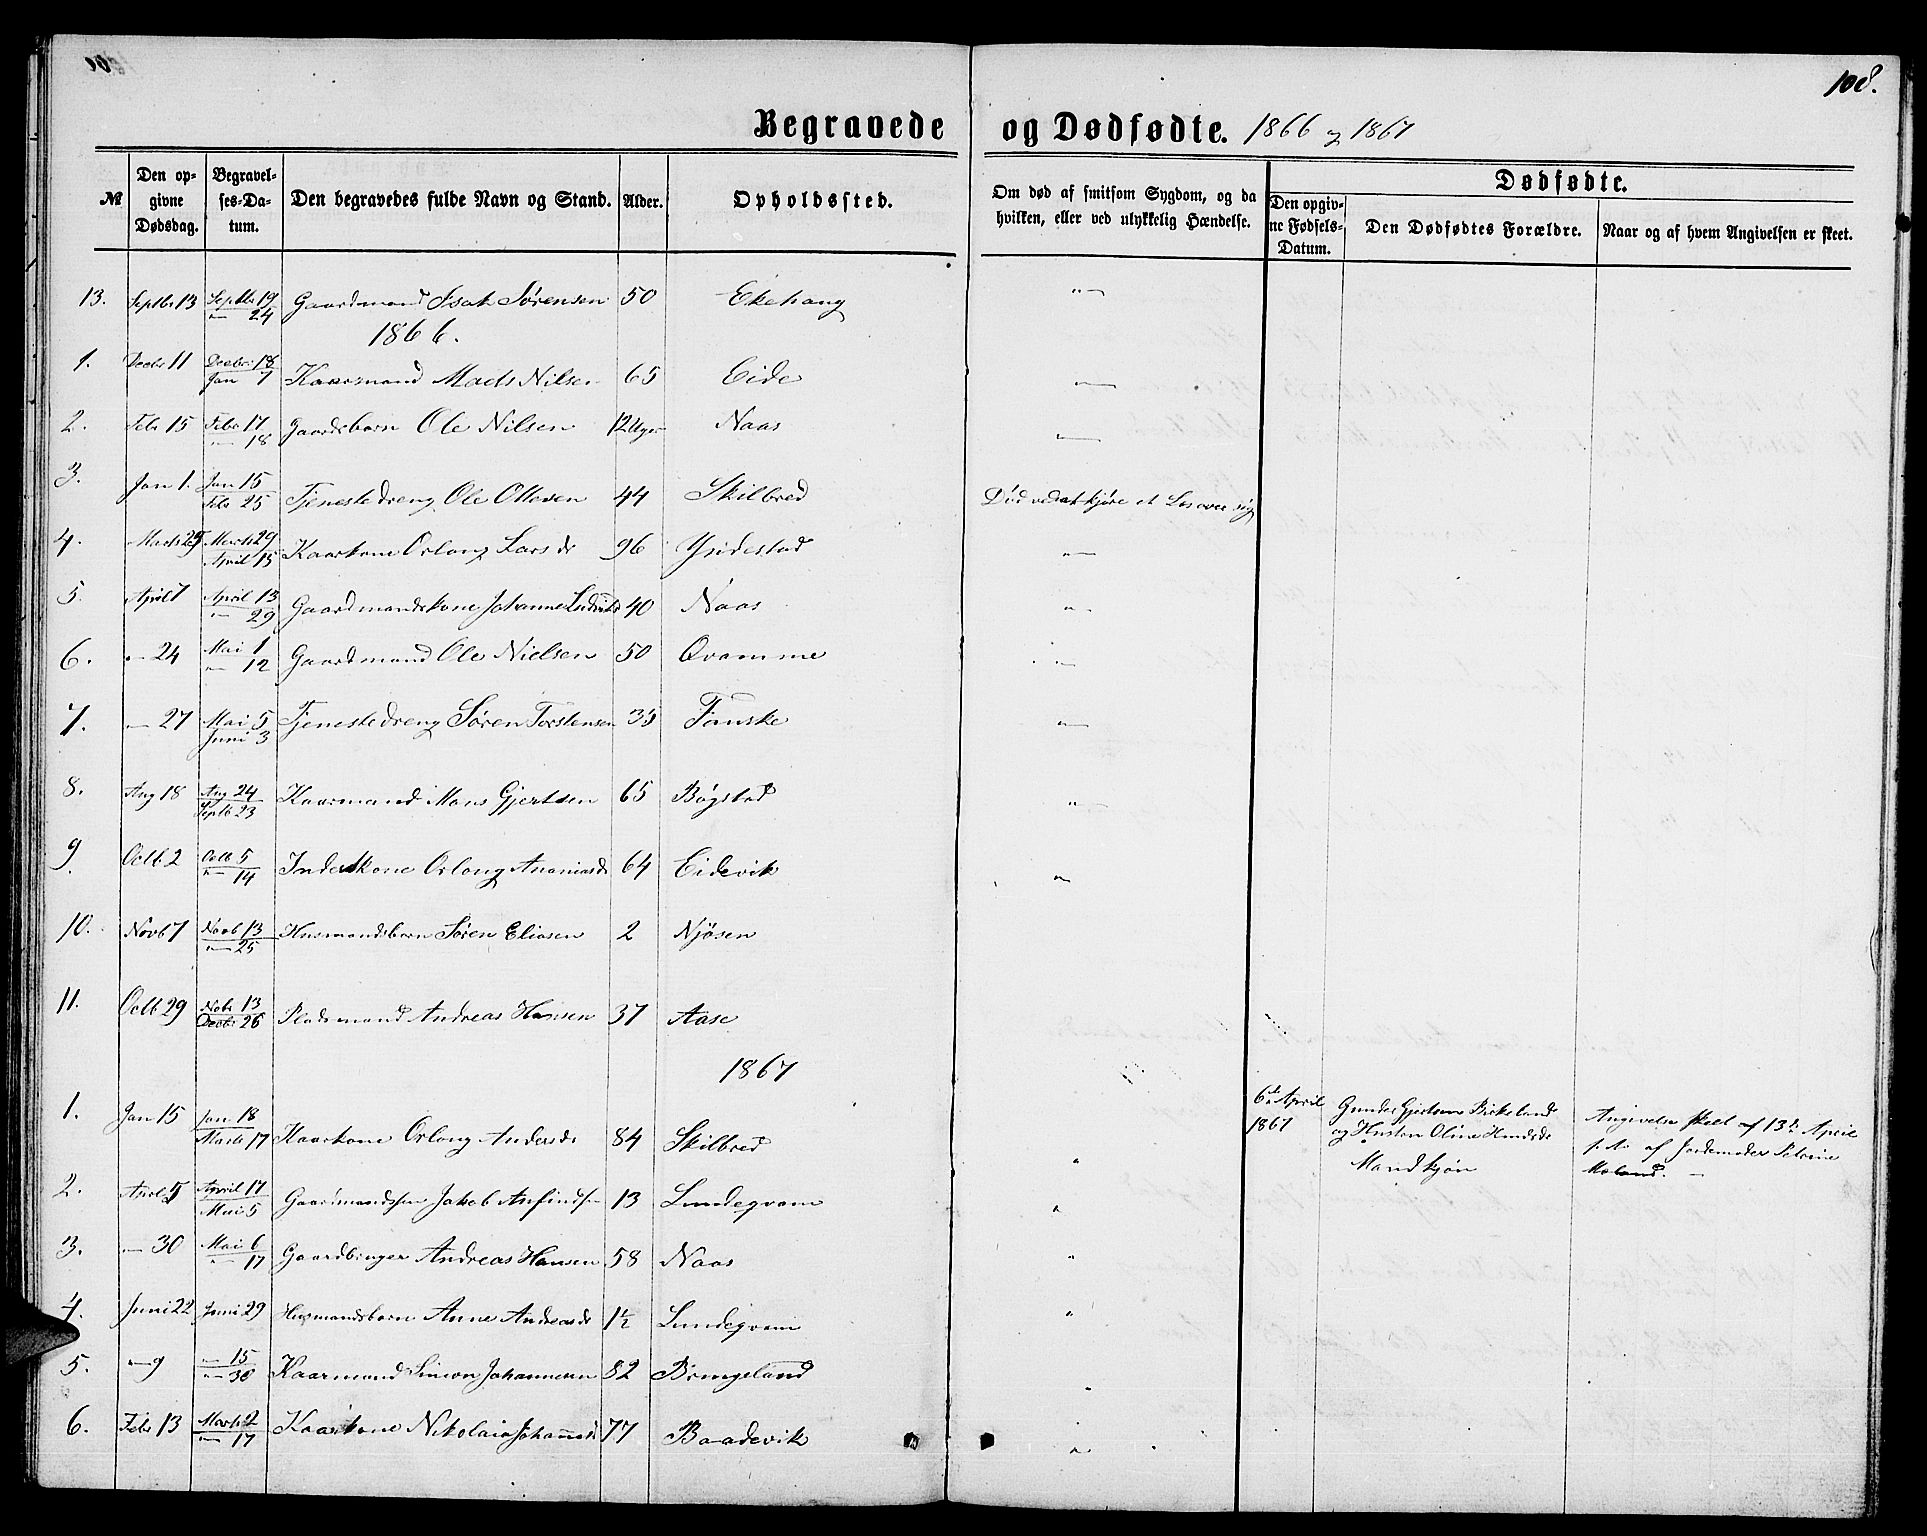 108.
Begravede og Dødfødte. 1866 og 1867
№
Den opgivne Dødsdag.
Begravelses-Datum.
Den begravedes fulde Navn og Stand.
Alder.
Opholdssted.
Om død af smitsom Sygdom, og da hvilken, eller ved ulykkelig Hændelse.
Dødfødte.
Den opgivne Fødsels-Datum.
Den Dødfødtes Forældre.
Naar og af hvem Angivelsen er skeet.
13. Septbr 13 Septbr 19 — 24 Gaardmand Isak Sørensen 50 Ekehaug "—
1866.
1. Decbr 11 Decbr 18 Jan 7 Kaarmand Mads Nilsen 65 Eide "—
2. Febr 15 Febr 17 — 18 Gaardsbarn Ole Nilsen 12 Uger Naas "—
3. Jan 1. Jan 15 Febr 25 Tjenestedreng Ole Ottesen 44 Skilbred Død ved at kjøre et Læs over sig
4. Marts 25 Marts 29 April 15 Kaarkone Orlong Larsdr 96 Yndestad "—
5. April 7 April 13 — 29 Gaardmandskone Johanne 40 Naas "—
6. — 24 Mai 1 — 12 Gaardmand Ole Nielsen 50 Qvamme "—
7. — 27 Mai 5 Juni 3 Tjenestedreng Søren Torstensen 35 Fauske "—
8. Aug 18 Aug 24 Septb 23 Kaarmand Mons Gjertsen 65 Bøgstad "—
9. Octb 2 Octb 5 — 14 Inderstkone Orlong Ananiasd 64 Eidevik "—
10. Novb 7 Novb 13 — 25 Husmandsbarn Søren Eliasen 2 Njøsen
11. Octb 29 Nobr 13 Decbr 26 Pladsmand Andreas Hansen 37 Aase
1867
1. Jan 15 Jan 18 Marts 17 Kaarkone Orlong Andersdr 84 Skilbred "
6te April 1867
Gunder Gjertsen Birkeland
og Hustru Oline Knudsdr
Mandkjøn
Angivelse skeet af 13de April
p. A. af Jordemoder Petrine
Moland. —
2. April 5 April 17 Mai 5 Gaardmandssøn Jakob Anfindsen 13 Lundeqvam "
3. — 30 Mai 6 — 17 Gaardbruger Andreas Hansen 58 Naas "
4. Juni 22 Juni 29 Husmandsbarn Anne Andreasdr 1½ Lundeqvam "
5. — 9 — 15 — 30 Kaarmand Simon Johannesen 82 Bringeland "
6. Febr 13 Marts 2 — 17 Kaarkone Nikolaia Johannesd 77 Baadevik "